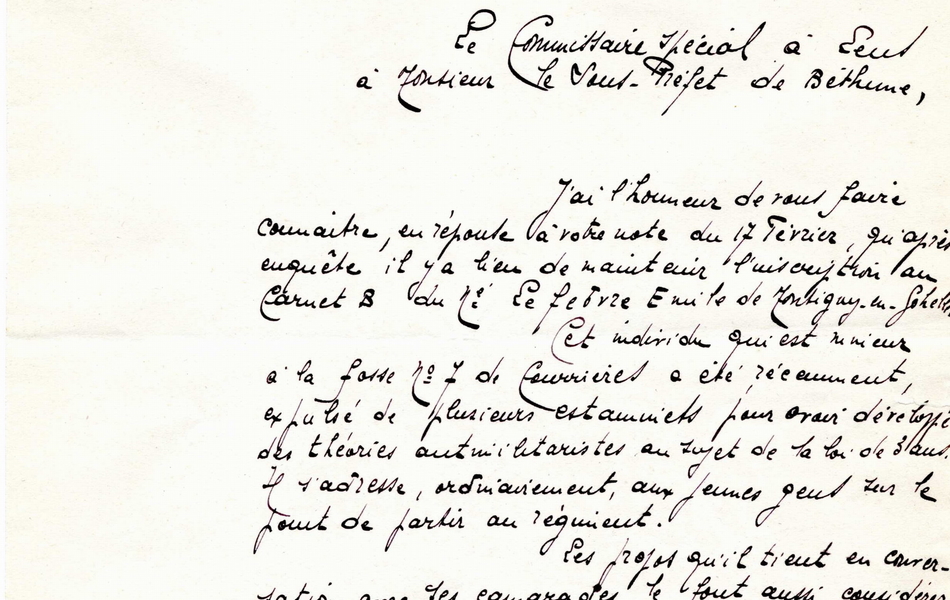 Le Commissaire Spécial à Lens
à Monsieur le Sous-Préfet de Béthune,
J'ai l'honneur de vous faire
connaitre, en réponse à votre note du 17 Février, qu'après
enquête il y a lieu de maintenir l'inscription au
Carnet B du Né Lefebvre Emile de Montigny-en-Gohelle
Cet individu qui est mineur
à la fosse No 7 de Courrières a été récemment,
expulsé de plusieurs estaminets pour avoir développé
des théories antimilitaristes au sujet de la loi de 3 ans.
Il s'adresse, ordinairement, aux jeunes gens sur le
point de partir au régiment.
Les propos qu'il tient en conver-
satio avec ses camarades le font aussi considérer